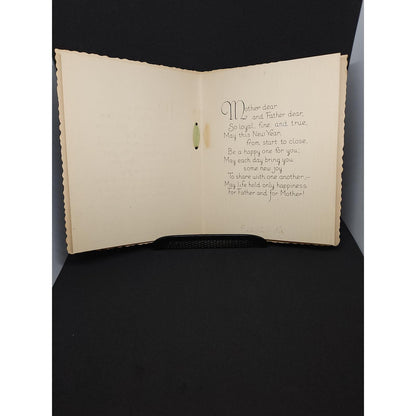 Mother dear
and Father dear,
So loyal, fine and true,
May this New Year,
from start to close,
Be a happy one for you;
May each day bring you
some new joy
To share with one another,—
May life hold only happiness
for Father and for Mother!